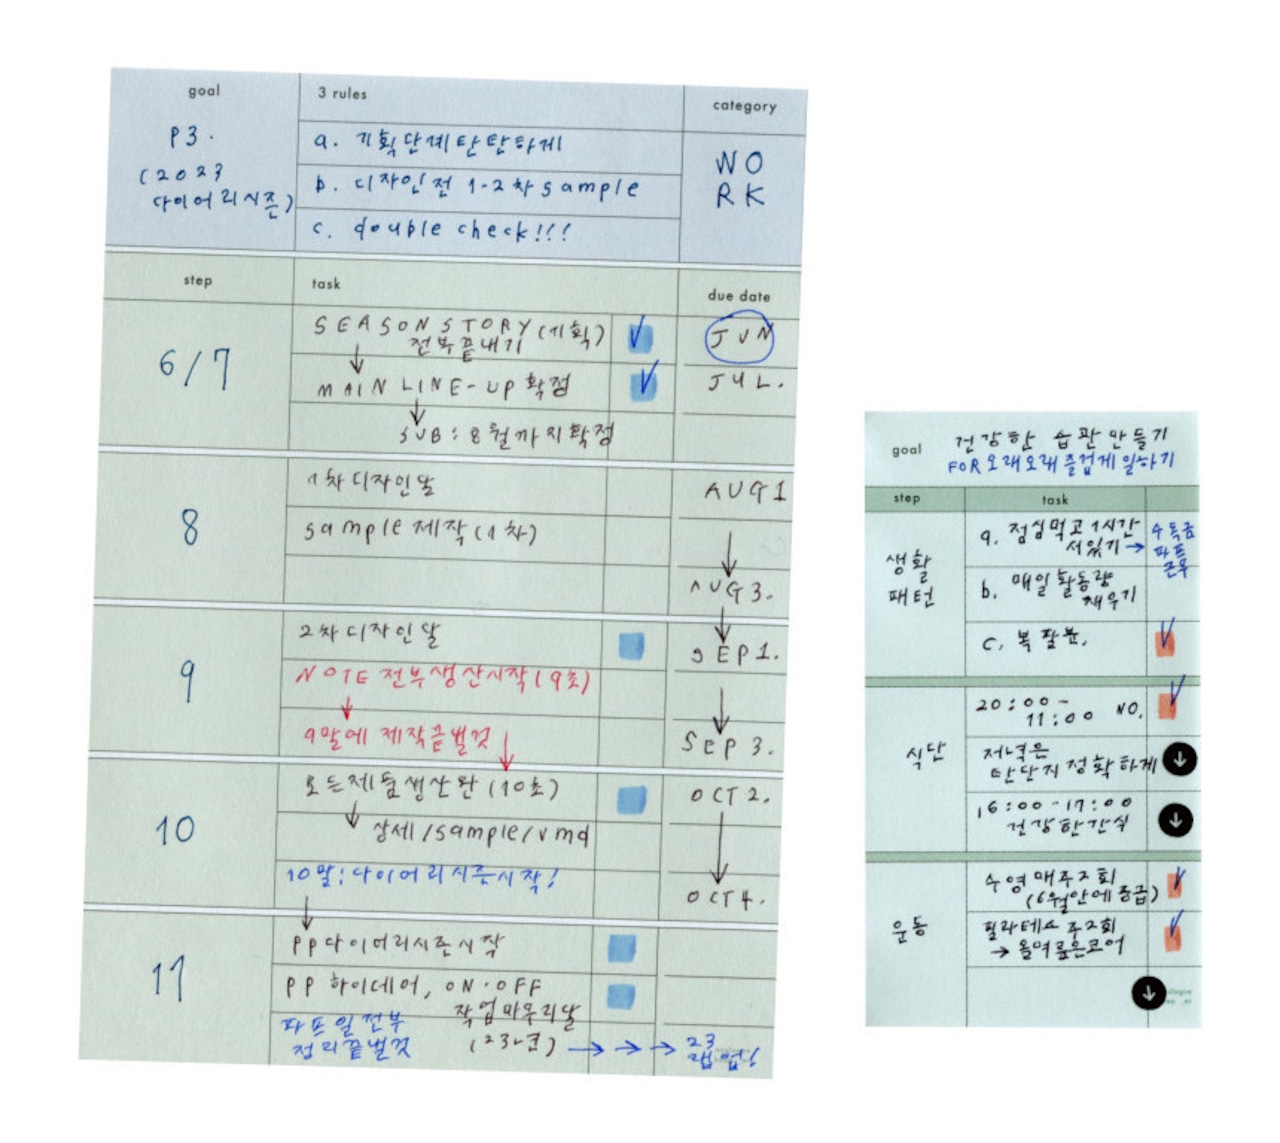 goal
3 rules
category
P3.
(2023
다이어리시즌)
a. 기획단계탄탄하게
b. 디자인전 1-2차 sample
c. double check!!!
WO
RK
step
task
due date
6/7
SEASON STORY (기획)
전부끝내기
JUN
MAIN LINE-UP 확정
JUL.
SUB: 8월까지확정
8
1차 디자인달
AUG1
sample 제작(1차)
AUG 3.
9
2차 디자인달
SEP1.
NOTE 전부생산시작(9초)
9말에 제작끝낼것
SEP 3.
10
모든제품생산완(10초)
OCT 2.
상세/sample/vmd
10말: 다이어리시즌시작!
OCT4.
11
PP다이어리시즌시작
PP 하이데어, ON·OFF
작업마무리달
(23년)
파프일전부
정리끝낼것
23
랩업!
goal
건강한 습관만들기
FOR 오래오래즐겁게일하기
step
task
생활
패턴
a. 점심먹고 1시간
서있기
수목금
파프
근무
b. 매일활동량
채우기
c. 복팔분.
식단
20:00-
11:00 NO.
저녁은
탄단지정확하게
16:00-17:00
건강한간식
운동
수영매주2회
(6월안에중급)
필라테스주2회
→ 올여름은코어